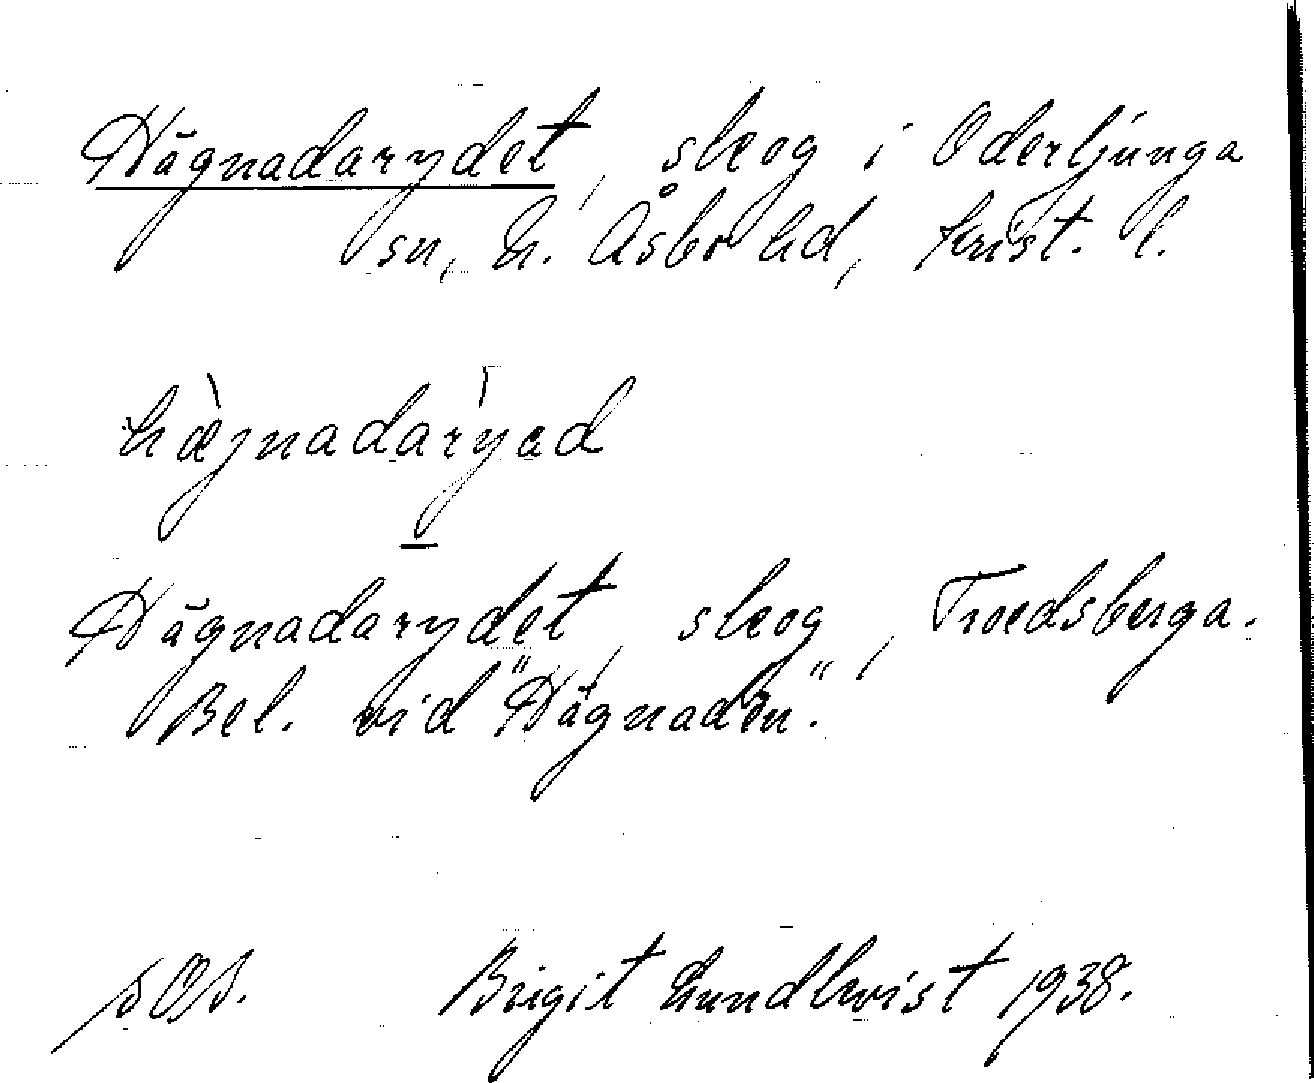 Hägnadarydet, skog i Oderljunga
sn, N. Åsbo hd, Krist. l.
hæjnadaryəd
Hägnadarydet, skog, Troedsberga.
Bel. vid "Hägnaden".
SOS. Birgit Lundkvist 1938.